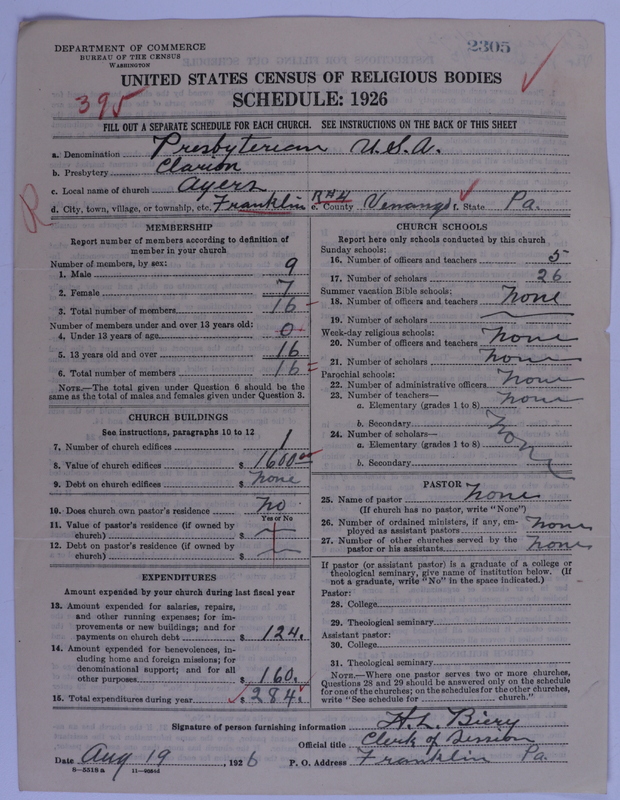 DEPARTMENT OF COMMERCE
BUREAU OF THE CENSUS
WASHINGTON
2305
UNITED STATES CENSUS OF RELIGIOUS BODIES
SCHEDULE: 1926
395
FILL OUT A SEPARATE SCHEDULE FOR EACH CHURCH. SEE INSTRUCTIONS ON THE BACK OF THIS SHEET
a. Denomination Presbyterian U.S.A.
b. Presbytery Clarion
c. Local name of church Ayers
d. City, town, village, or township, etc. Franklin R#4 e. County Venango f. State Pa.
R
MEMBERSHIP
Report number of members according to definition of
member in your church
Number of members, by sex:
1. Male 9
2. Female 7
3. Total number of members 16
Number of members under and over 13 years old:
4. Under 13 years of age 0
5. 13 years old and over 16
6. Total number of members 16
NOTE.—The total given under Question 6 should be the
same as the total of males and females given under Question 3.
CHURCH BUILDINGS
See instructions, paragraphs 10 to 12
7. Number of church edifices 1
8. Value of church edifices $ 1600.00
9. Debt on church edifices $ none
10. Does church own pastor's residence no
Yes or No
11. Value of pastor's residence (if owned by
church) $
12. Debt on pastor's residence (if owned by
church) $
EXPENDITURES
Amount expended by your church during last fiscal year
13. Amount expended for salaries, repairs,
and other running expenses; for im-
provements or new buildings; and for
payments on church debt $ 124.
14. Amount expended for benevolences, in-
cluding home and foreign missions; for
denominational support; and for all
other purposes $ 160.
15. Total expenditures during year $ 284.
CHURCH SCHOOLS
Report here only schools conducted by this church
Sunday schools:
16. Number of officers and teachers 5
17. Number of scholars 26
Summer vacation Bible schools:
18. Number of officers and teachers none
19. Number of scholars
Week-day religious schools:
20. Number of officers and teachers none
21. Number of scholars none
Parochial schools:
22. Number of administrative officers none
23. Number of teachers—
a. Elementary (grades 1 to 8) none
b. Secondary
24. Number of scholars—
a. Elementary (grades 1 to 8) none
b. Secondary
PASTOR
25. Name of pastor none
(If church has no pastor, write "None")
26. Number of ordained ministers, if any, em-
ployed as assistant pastors none
27. Number of other churches served by the
pastor or his assistants none
If pastor (or assistant pastor) is a graduate of a college or
theological seminary, give name of institution below. (If
not a graduate, write "No" in the space indicated.)
Pastor:
28. College
29. Theological seminary
Assistant pastor:
30. College
31. Theological seminary
NOTE.—Where one pastor serves two or more churches,
Questions 28 and 29 should be answered only on the schedule
for one of the churches; on the schedules for the other churches,
write "See schedule for church."
Signature of person furnishing information H. L. Biery
Official title Clerk of Session
Date Aug 19, 1926 P. O. Address Franklin Pa.